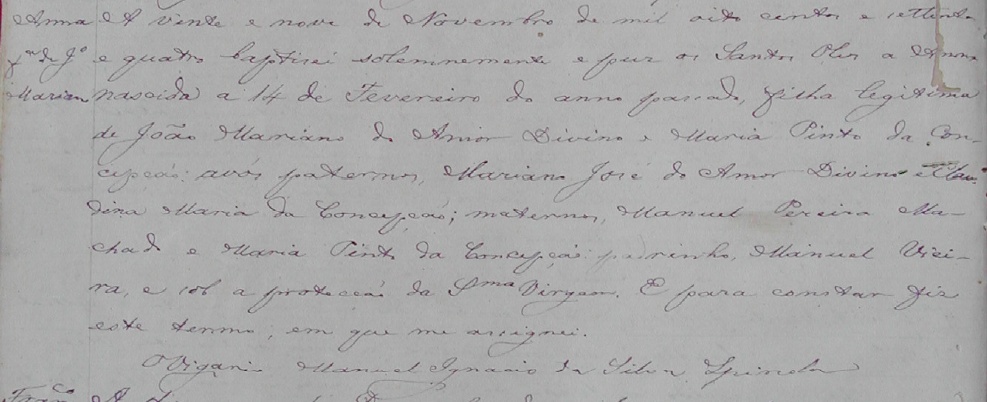 Anna A vinte e nove de Novembro de mil oito centos e settenta
fa de Jo e quatro baptisei solemnemente e puz os Santos Oleos a Anna
Mariano nascida a 14 de Fevereiro do anno passado, filha legitima
de João Mariano do Amor Divino e Maria Pinto da Con-
cepção: avós paternos, Mariano José do Amor Divino e Clau-
dina Maria da Conceição; maternos, Manuel Pereira Ma-
chado e Maria Pinto da Conceição: padrinho, Manuel Viei-
ra, e sob a protecção da Sma Virgem. E para constar fiz
este termo, em que me assignei.
O Vigario Manuel Ignacio da Silva Espinola
Franco A